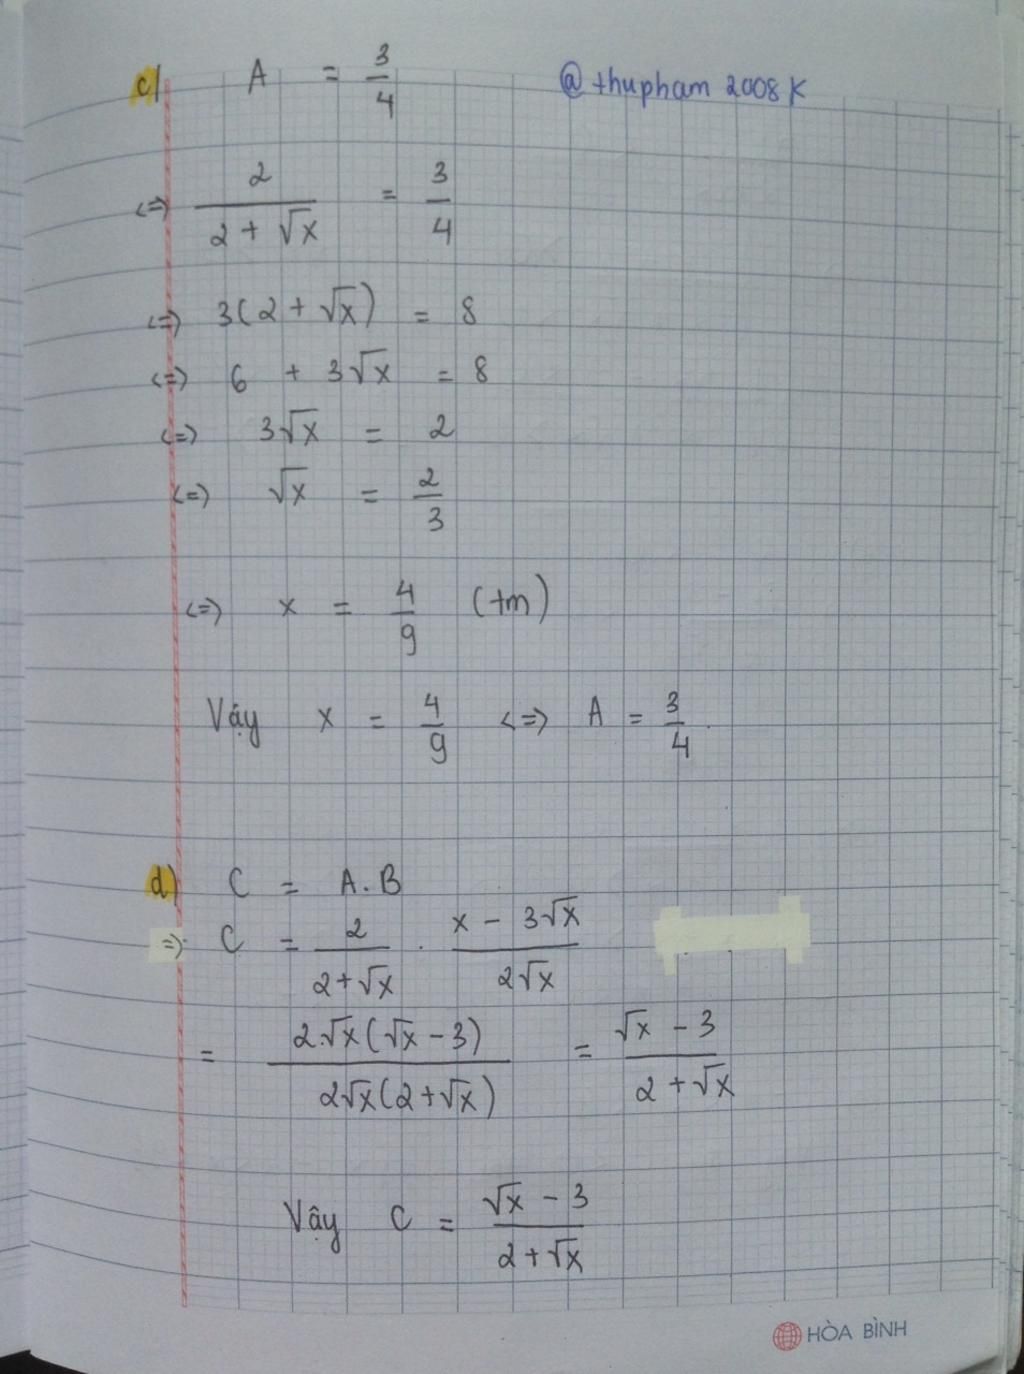 c) A = 3/4 @thupham 2008K
<=> 2/(2 + √x) = 3/4
<=> 3(2 + √x) = 8
<=> 6 + 3√x = 8
<=> 3√x = 2
<=> √x = 2/3
<=> x = 4/9 (tm)
Vậy x = 4/9 <=> A = 3/4.
d) C = A.B
=> C = 2/(2+√x) . (x - 3√x)/(2√x)
= 2.√x(√x - 3)/(2√x(2+√x)) = (√x - 3)/(2 + √x)
Vậy C = (√x - 3)/(2 + √x)
HÒA BÌNH